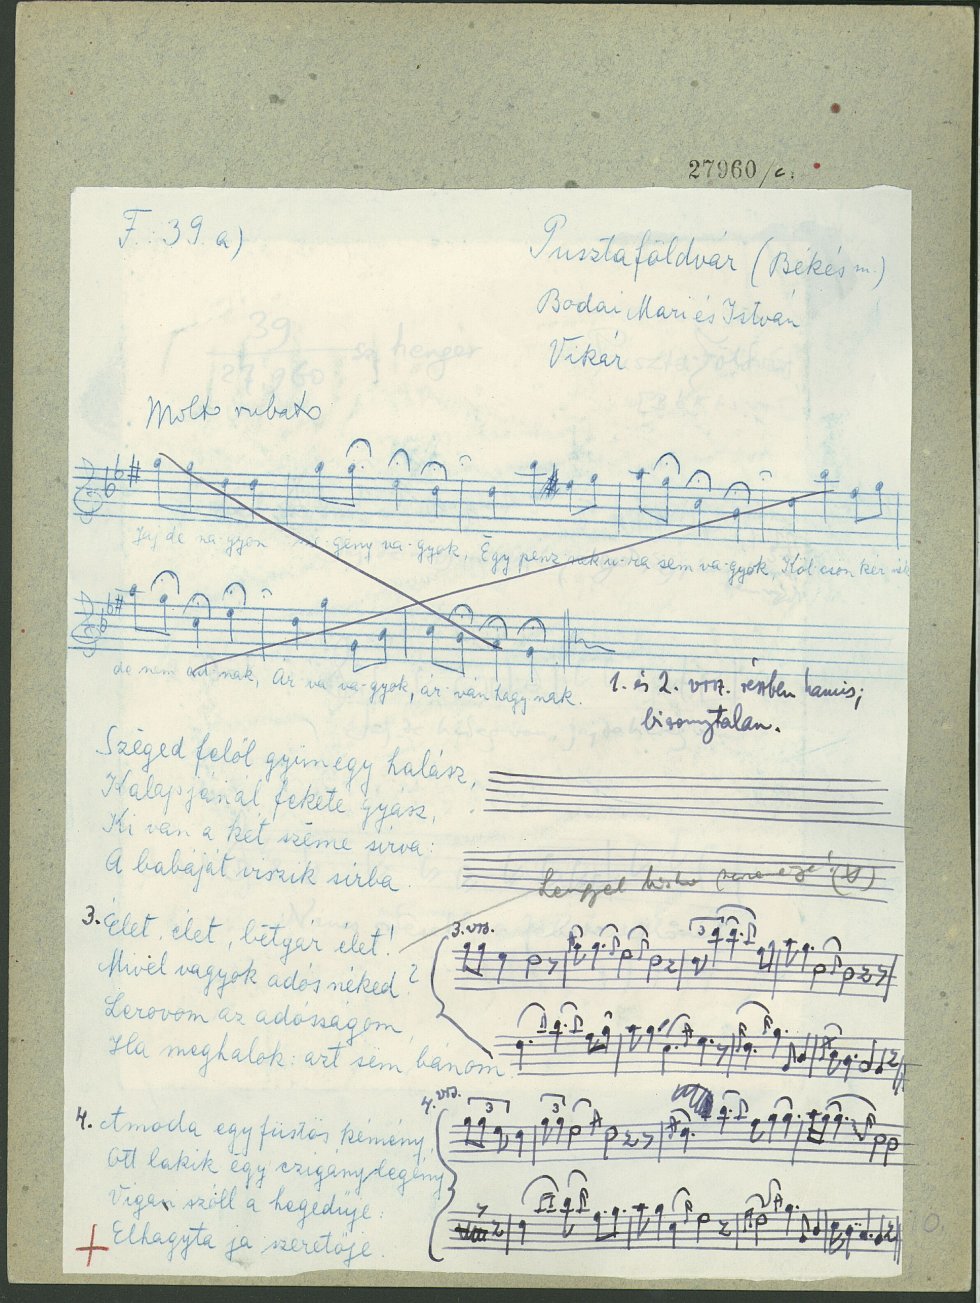 27960/c.
F. 39 a)
Pusztaföldvár (Békés m.)
Bodai Mari és István
Vikár
39
27,960 sz. henger
Molto rubato
Jaj de na-gyon sze-gény va-gyok, Egy pénz-nek u-ra sem va-gyok, Köl-csön kér-nék
de nem ad-nak, Ár-va va-gyok, ár-ván hagy-nak.
1. és 2. vsz. részben hamis;
bizonytalan.
Szeged felől gyün egy halász,
Kalapjánál fekete gyász,
Ki van a két széme sirva:
A babáját viszik sirba.
Lengyel
3. Élet, élet, bétyár élet!
Mivel vagyok adós néked?
Lerovom az adósságom,
Ha meghalok: azt sem bánom.
3. vsz.
3
4. Amoda egy füstös kémény,
Ott lakik egy czigánylegény
Vigan szóll a hegedüje:
Elhagyta ja szeretöje.
4. vsz.
3
3